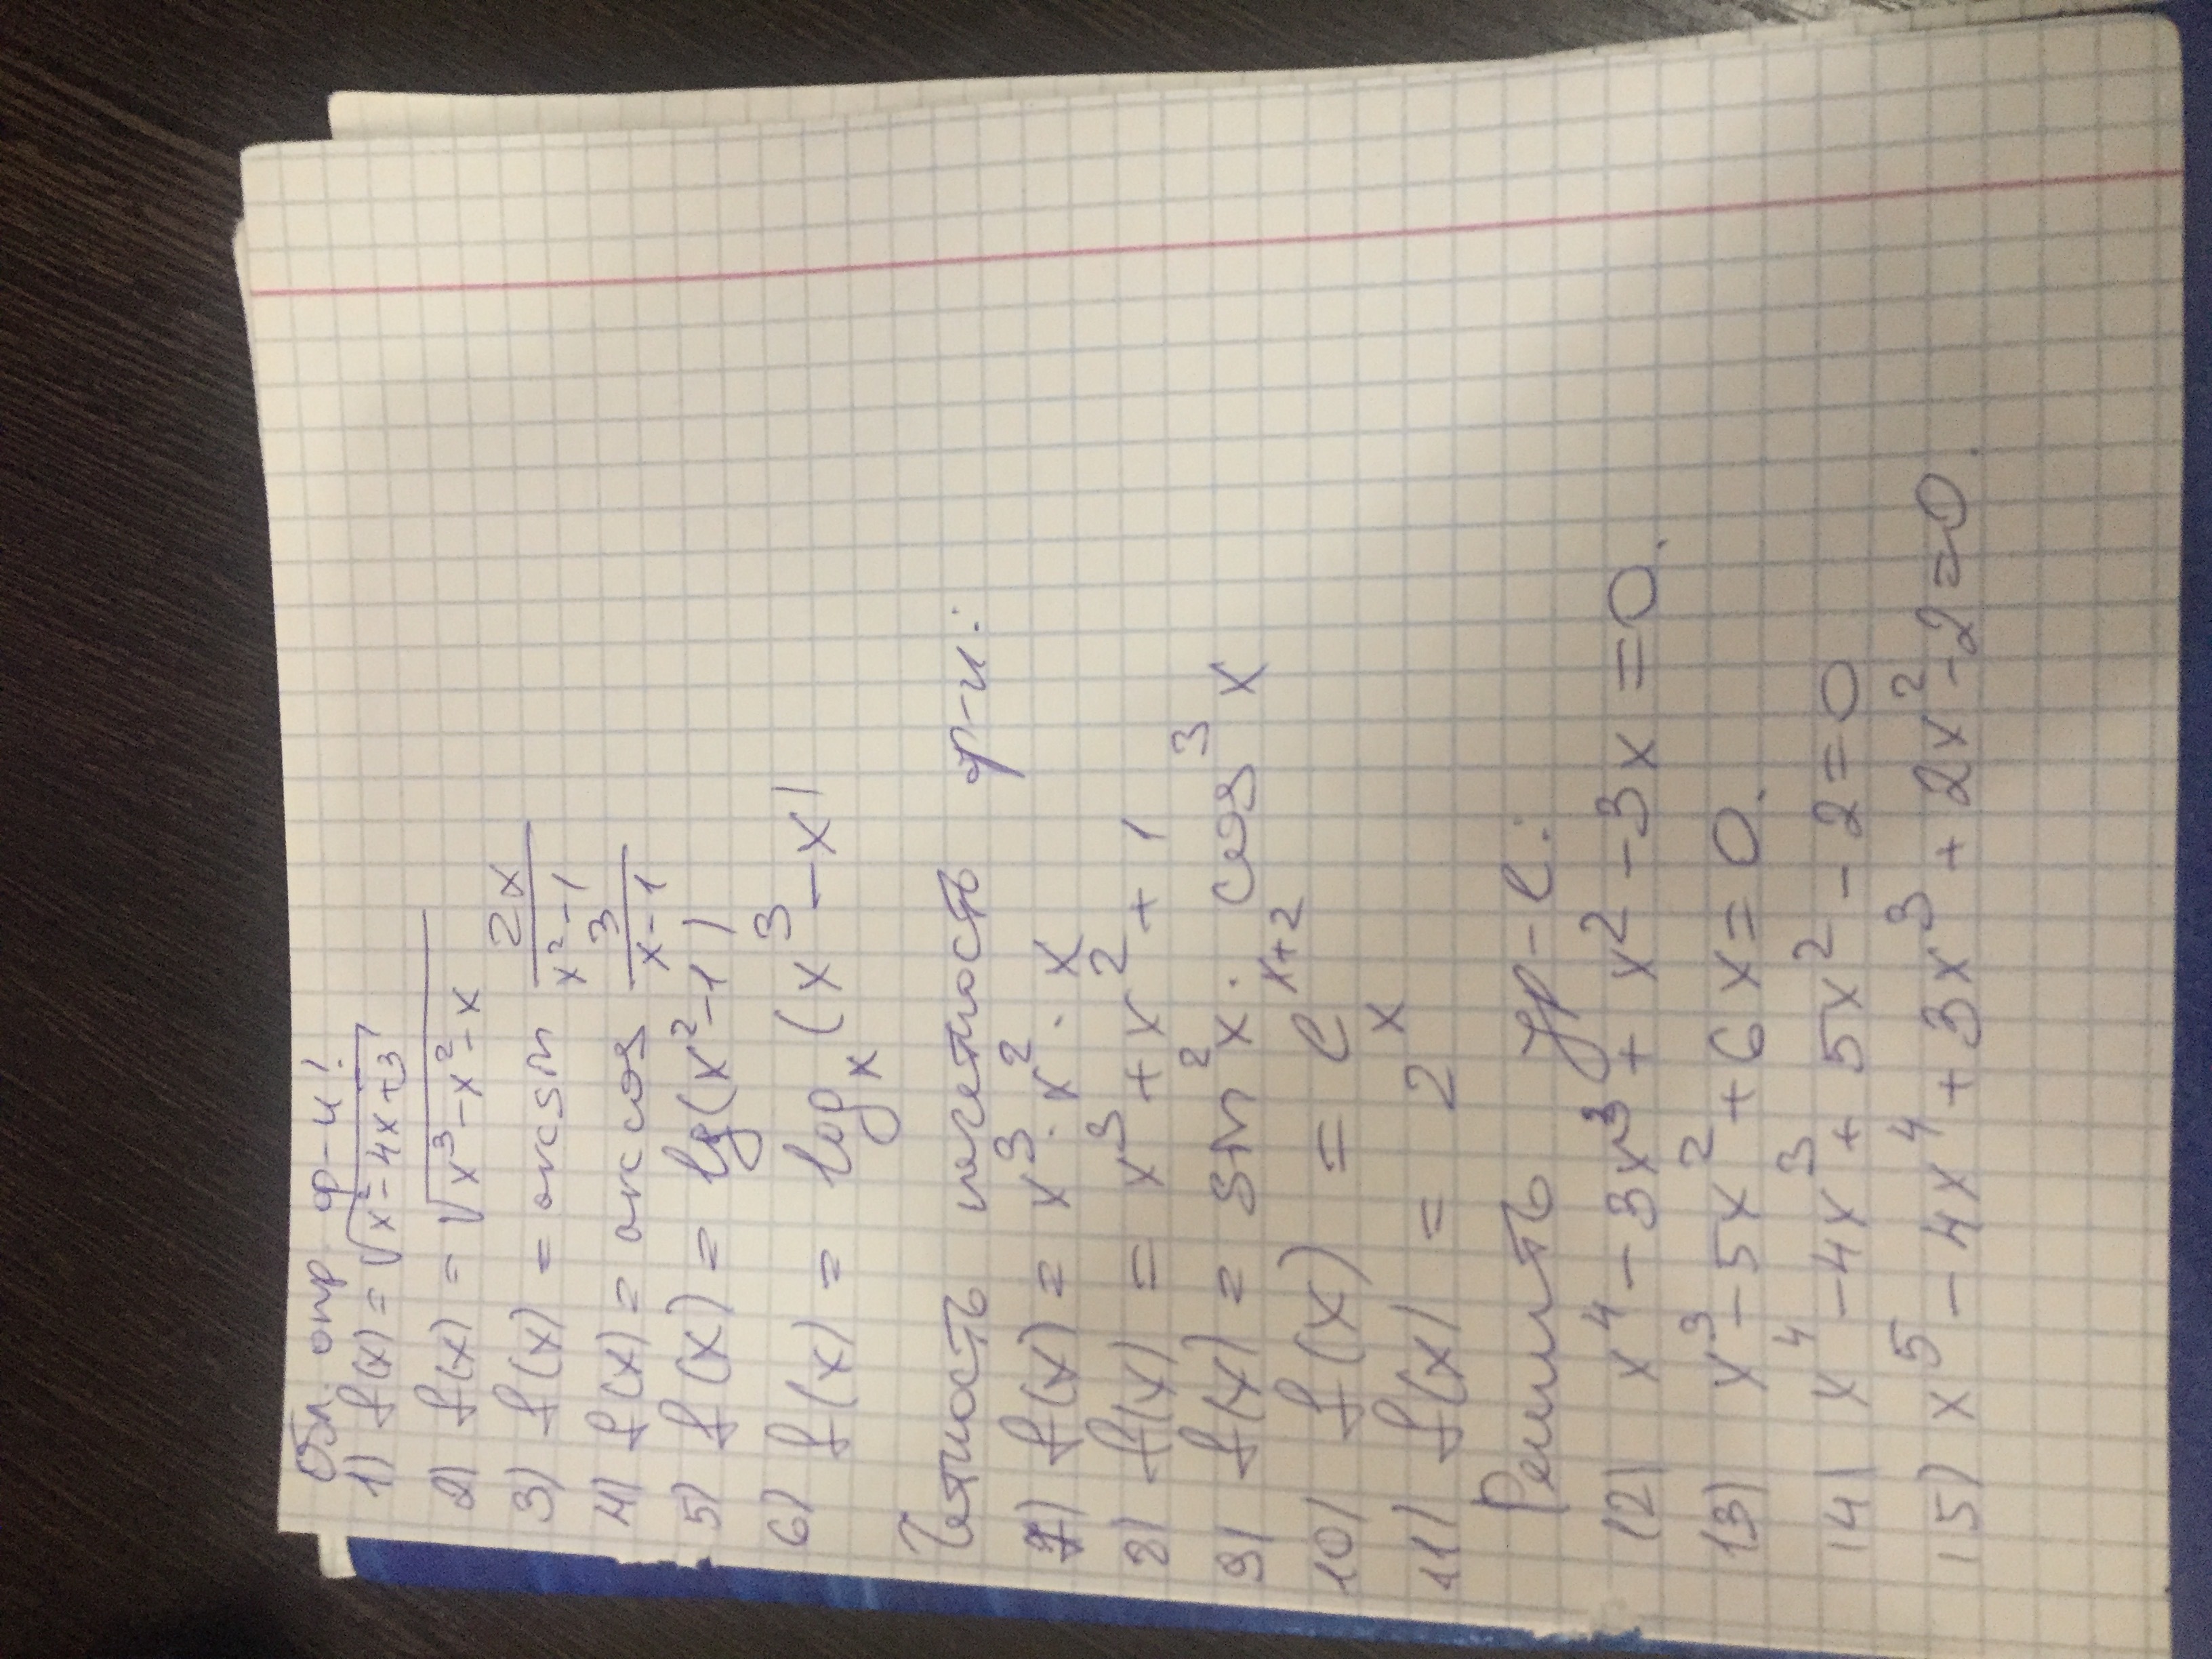 Обл. опр ф-и!
1) f(x) = √(x² - 4x + 3)
2) f(x) = √(x³ - x² - x)
3) f(x) = arcsin 2x/(x² - 1)
4) f(x) = arccos 3/(x - 1)
5) f(x) = lg(x² - 1)
6) f(x) = logₓ(x³ - x)
Четность нечетность ф-и:
7) f(x) = x³ · x² · x
8) f(x) = x³ + x² + 1
9) f(x) = sin²x · cos³x
10) f(x) = e^(x+2)
11) f(x) = 2^x
Решить ур-е:
12) x⁴ - 3x³ + x² - 3x = 0.
13) x³ - 5x² + 6x = 0.
14) x⁴ - 4x³ + 5x² - 2 = 0
15) x⁵ - 4x⁴ + 3x³ + 2x² - 2 = 0.